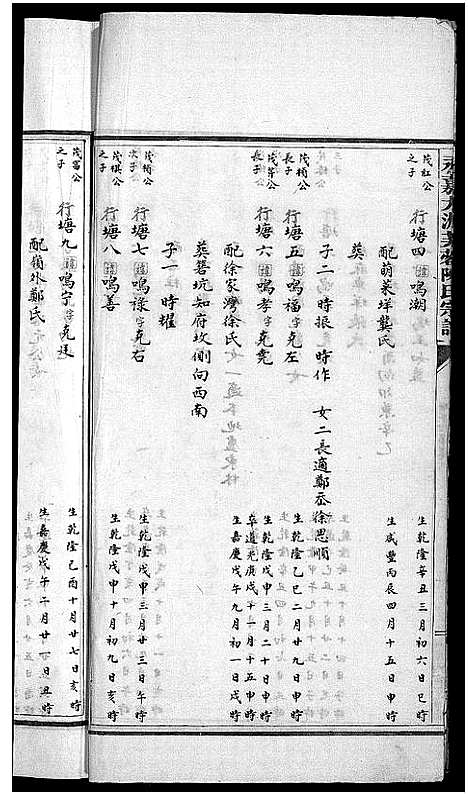 茂紅公之子 行塘四 鳴潮 生乾隆辛丑三月初六日巳時
配萌菜垟龔氏 生咸豐丙辰四月十五日申時
葵
子二 時振 時作 女二長適鄭丞徐思順
茂楠公長子 行塘五 鳴福字克左 生乾隆乙巳二月廿九日申時
長子 行塘六 鳴孝字克寬 生乾隆戊申三月二十日申時
卒道光庚戌十一月十五申時
配徐家灣徐氏 生嘉慶戊午九月初一日戌時
葵箬坑知府坟側向西南
子一 時耀
茂楠公次子 行塘七 鳴祿字克右 生乾隆戊申三月廿三日午時
茂棋公之子 行塘八 鳴善 生乾隆戊申十月初九日亥時
茂富公之子 行塘九 鳴宁字克廷 生乾隆己酉十月廿七日亥時
配嶺外鄭氏 生嘉慶戊午二月廿一日丑時